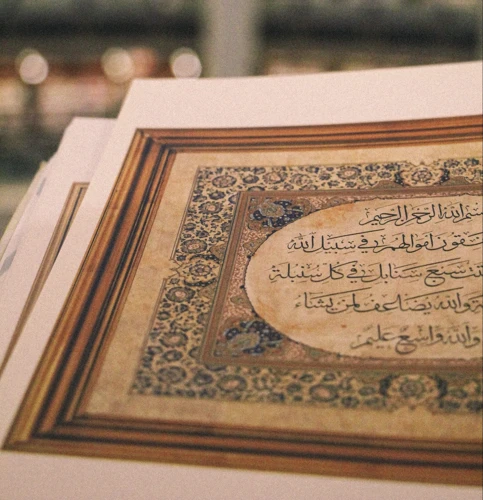 بسم الله الرحمن الرحيم
ينفقون اموالهم في سبيل الله
انبتت سبع سنابل في كل سنبلة
والله يضاعف لمن يشاء
والله واسع عليم